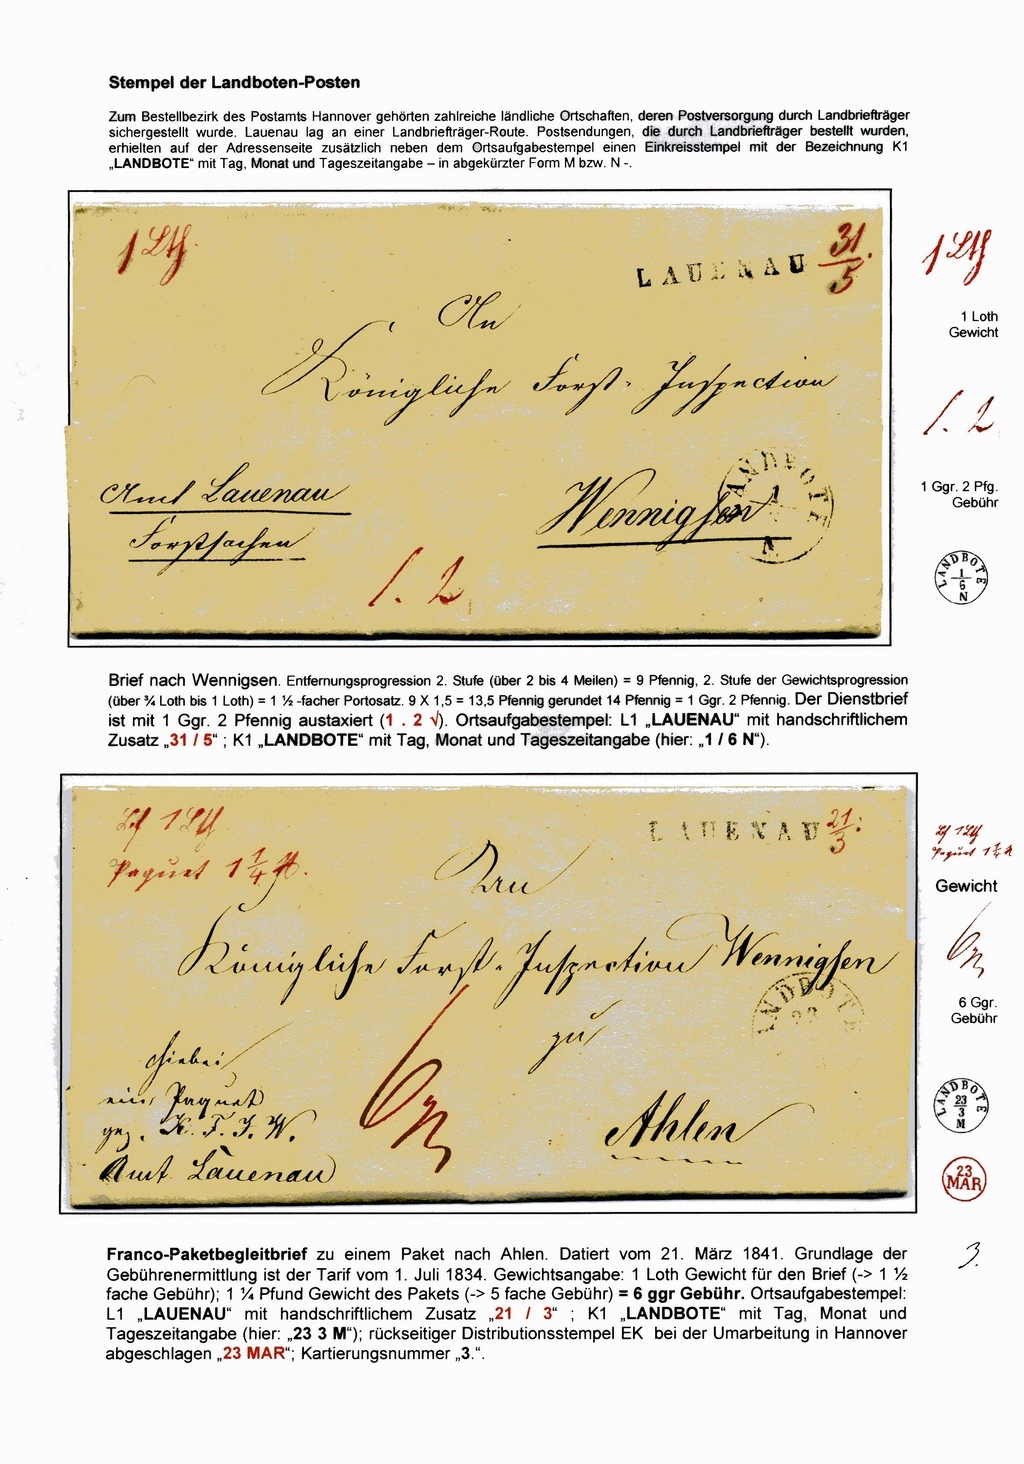 Stempel der Landboten-Posten
Zum Bestellbezirk des Postamts Hannover gehörten zahlreiche ländliche Ortschaften, deren Postversorgung durch Landbriefträger
sichergestellt wurde. Lauenau lag an einer Landbriefträger-Route. Postsendungen, die durch Landbriefträger bestellt wurden,
erhielten auf der Adressenseite zusätzlich neben dem Ortsaufgabestempel einen Einkreisstempel mit der Bezeichnung K1
„LANDBOTE“ mit Tag, Monat und Tageszeitangabe – in abgekürzter Form M bzw. N -.
1 Lth.
LAUENAU 31/5.
An
Königliche Forst-Inspection
Amt Lauenau
Forstsachen
Wennigsen
LANDBOTE
1
N
1. 2
1 Lth
1 Loth
Gewicht
1. 2
1 Ggr. 2 Pfg.
Gebühr
LANDBOTE
1/6
N
Brief nach Wennigsen. Entfernungsprogression 2. Stufe (über 2 bis 4 Meilen) = 9 Pfennig, 2. Stufe der Gewichtsprogression
(über ¾ Loth bis 1 Loth) = 1 ½ -facher Portosatz. 9 X 1,5 = 13,5 Pfennig gerundet 14 Pfennig = 1 Ggr. 2 Pfennig. Der Dienstbrief
ist mit 1 Ggr. 2 Pfennig austaxiert (1 . 2 √). Ortsaufgabestempel: L1 „LAUENAU“ mit handschriftlichem
Zusatz „31 / 5“ ; K1 „LANDBOTE“ mit Tag, Monat und Tageszeitangabe (hier: „1 / 6 N“).
1 Lth
Paquet 1 1/4
LAUENAU 21/3.
An
Königliche Forst-Inspection Wennigsen
zu
Ahlen
LANDBOTE
23
Hiebei
ein Paquet
gez. K. F. J. W.
Amt Lauenau
6
1 Lth
Paquet 1 1/4
Gewicht
6
6 Ggr.
Gebühr
LANDBOTE
23/3
M
23
MAR
3.
Franco-Paketbegleitbrief zu einem Paket nach Ahlen. Datiert vom 21. März 1841. Grundlage der
Gebührenermittlung ist der Tarif vom 1. Juli 1834. Gewichtsangabe: 1 Loth Gewicht für den Brief (-> 1 ½
fache Gebühr); 1 ¼ Pfund Gewicht des Pakets (-> 5 fache Gebühr) = 6 ggr Gebühr. Ortsaufgabestempel:
L1 „LAUENAU“ mit handschriftlichem Zusatz „21 / 3“ ; K1 „LANDBOTE“ mit Tag, Monat und
Tageszeitangabe (hier: „23 3 M“); rückseitiger Distributionsstempel EK bei der Umarbeitung in Hannover
abgeschlagen „23 MAR“; Kartierungsnummer „3.“.